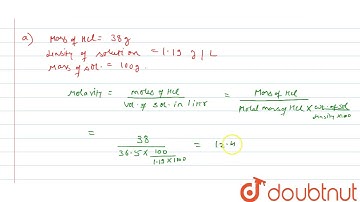 a) Mass of Hcl = 38g
density of solution = 1.19 g / L
Mass of sol. = 100g
Molarity = moles of Hcl / Vol. of sol. in litre = Mass of Hcl / Molal mass of Hcl × wt. of sol / density × 100
= 38 / 36.5 × 100 / 1.19 × 100 = 12.4
doubtnut